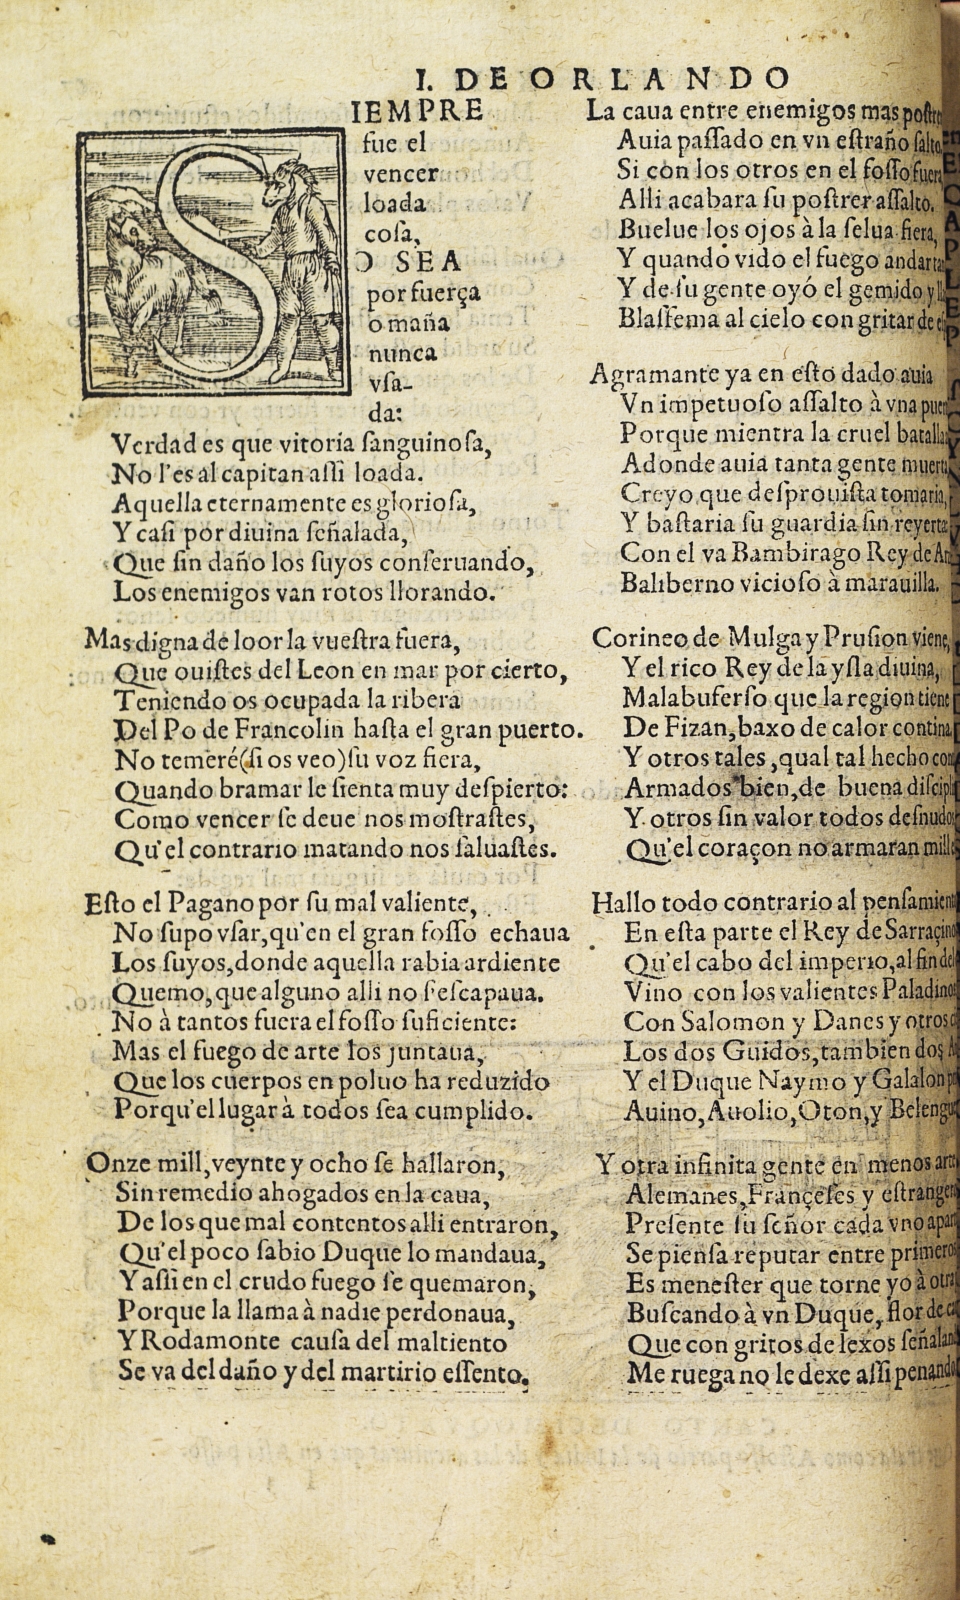 I. DE ORLANDO
SIEMPRE
fue el
vencer
loada
cosa,
O SEA
por fuerça
o maña
nunca
vsa-
da:
Verdad es que vitoria sanguinosa,
No l'es al capitan assi loada.
Aquella eternamente es gloriosa,
Y casi por diuina señalada,
Que sin daño los suyos conseruando,
Los enemigos van rotos llorando.
Mas digna de loor la vuestra fuera,
Que ouistes del Leon en mar por cierto,
Teniendo os ocupada la ribera
Del Po de Francolin hasta el gran puerto.
No temeré (si os veo) su voz fiera,
Quando bramar le sienta muy despierto:
Como vencer se deue nos mostrastes,
Qu'el contrario matando nos saluastes.
Esto el Pagano por su mal valiente,
No supo vsar, qu'en el gran fosso echaua
Los suyos, donde aquella rabia ardiente
Quemo, que alguno alli no s'escapaua.
No à tantos fuera el fosso suficiente:
Mas el fuego de arte los juntaua,
Que los cuerpos en poluo ha reduzido
Porqu'el lugar à todos sea cumplido.
Onze mill, veynte y ocho se hallaron,
Sin remedio ahogados en la caua,
De los que mal contentos alli entraron,
Qu'el poco sabio Duque lo mandaua,
Y assi en el crudo fuego se quemaron,
Porque la llama à nadie perdonaua,
Y Rodamonte causa del maltiento
Se va del daño y del martirio essento.
La caua entre enemigos mas
Auia passado en vn estraño salto,
Si con los otros en el fosso fuera
Alli acabara su postrer assalto.
Buelue los ojos à la selua fiera,
Y quando vido el fuego andar
Y de su gente oyó el gemido y
Blasfema al cielo con gritar de
Agramante ya en esto dado auia
Vn impetuoso assalto à vna
Porque mientra la cruel batalla
Adonde auia tanta gente muerta
Creyo que desprouista tomaria,
Y bastaria su guardia sin reyerta
Con el va Bambirago Rey de
Baliberno vicioso à marauilla.
Corineo de Mulga y Prusion viene,
Y el rico Rey de la ysla diuina,
Malabuferso que la region tiene
De Fizan, baxo de calor contina
Y otros tales, qual tal hecho
Armados bien, de buena
Y otros sin valor todos desnudos
Qu'el coraçon no armaran mill
Hallo todo contrario al
En esta parte el Rey de
Qu'el cabo del imperio, al fin del
Vino con los valientes Paladinos
Con Salomon y Danes y otros
Los dos Guidos, tambien dos
Y el Duque Naymo y Galalon
Auino, Auolio, Oton, y
Y otra infinita gente en menos
Alemanes, Françeses y
Presente su señor cada vno
Se piensa reputar entre primeros
Es menester que torne yo à otra
Buscando à vn Duque, flor de
Que con gritos de lexos
Me ruega no le dexe assi penando